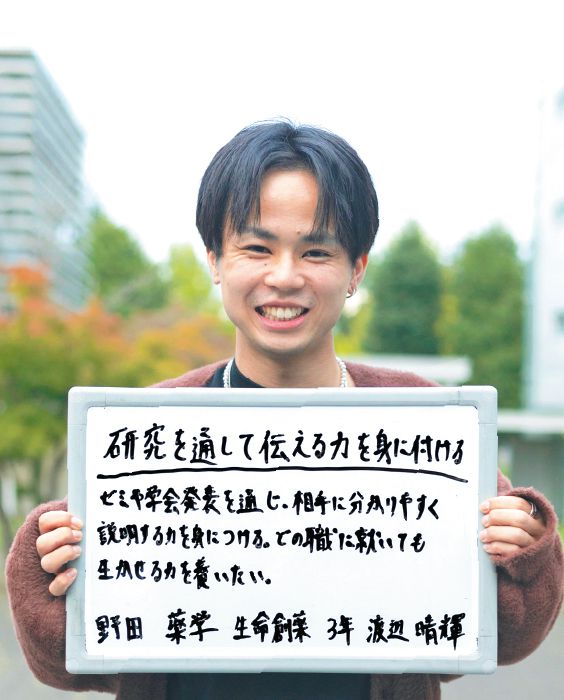 研究を通して伝える力を身に付ける
ゼミや学会発表を通じ、相手に分かりやすく
説明する力を身につける。どの職に就いても
生かせる力を養いたい。
野田 薬学 生命創薬 3年 渡辺 晴輝